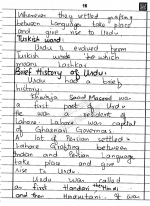 16
Whenever they settled grafting
between Languages take place
and give rise to Urdu
Turkish word:
Urdu is evolved from
Turkish words which
means Lashkar
Brief History of Urdu:
Urdu had a brief
history.
Khwaja Saad Masood was
a first poet of Urdu
He was a resident of
Lahore. Lahore was capital
of Ghaznavi Governors.
A lot of Persian settled
Lahore Grafting between
Indian and Persian Language
take place and give
rise to Urdu.
Urdu was called
as first Handvi, then Hindi
and then Hindustani. It was